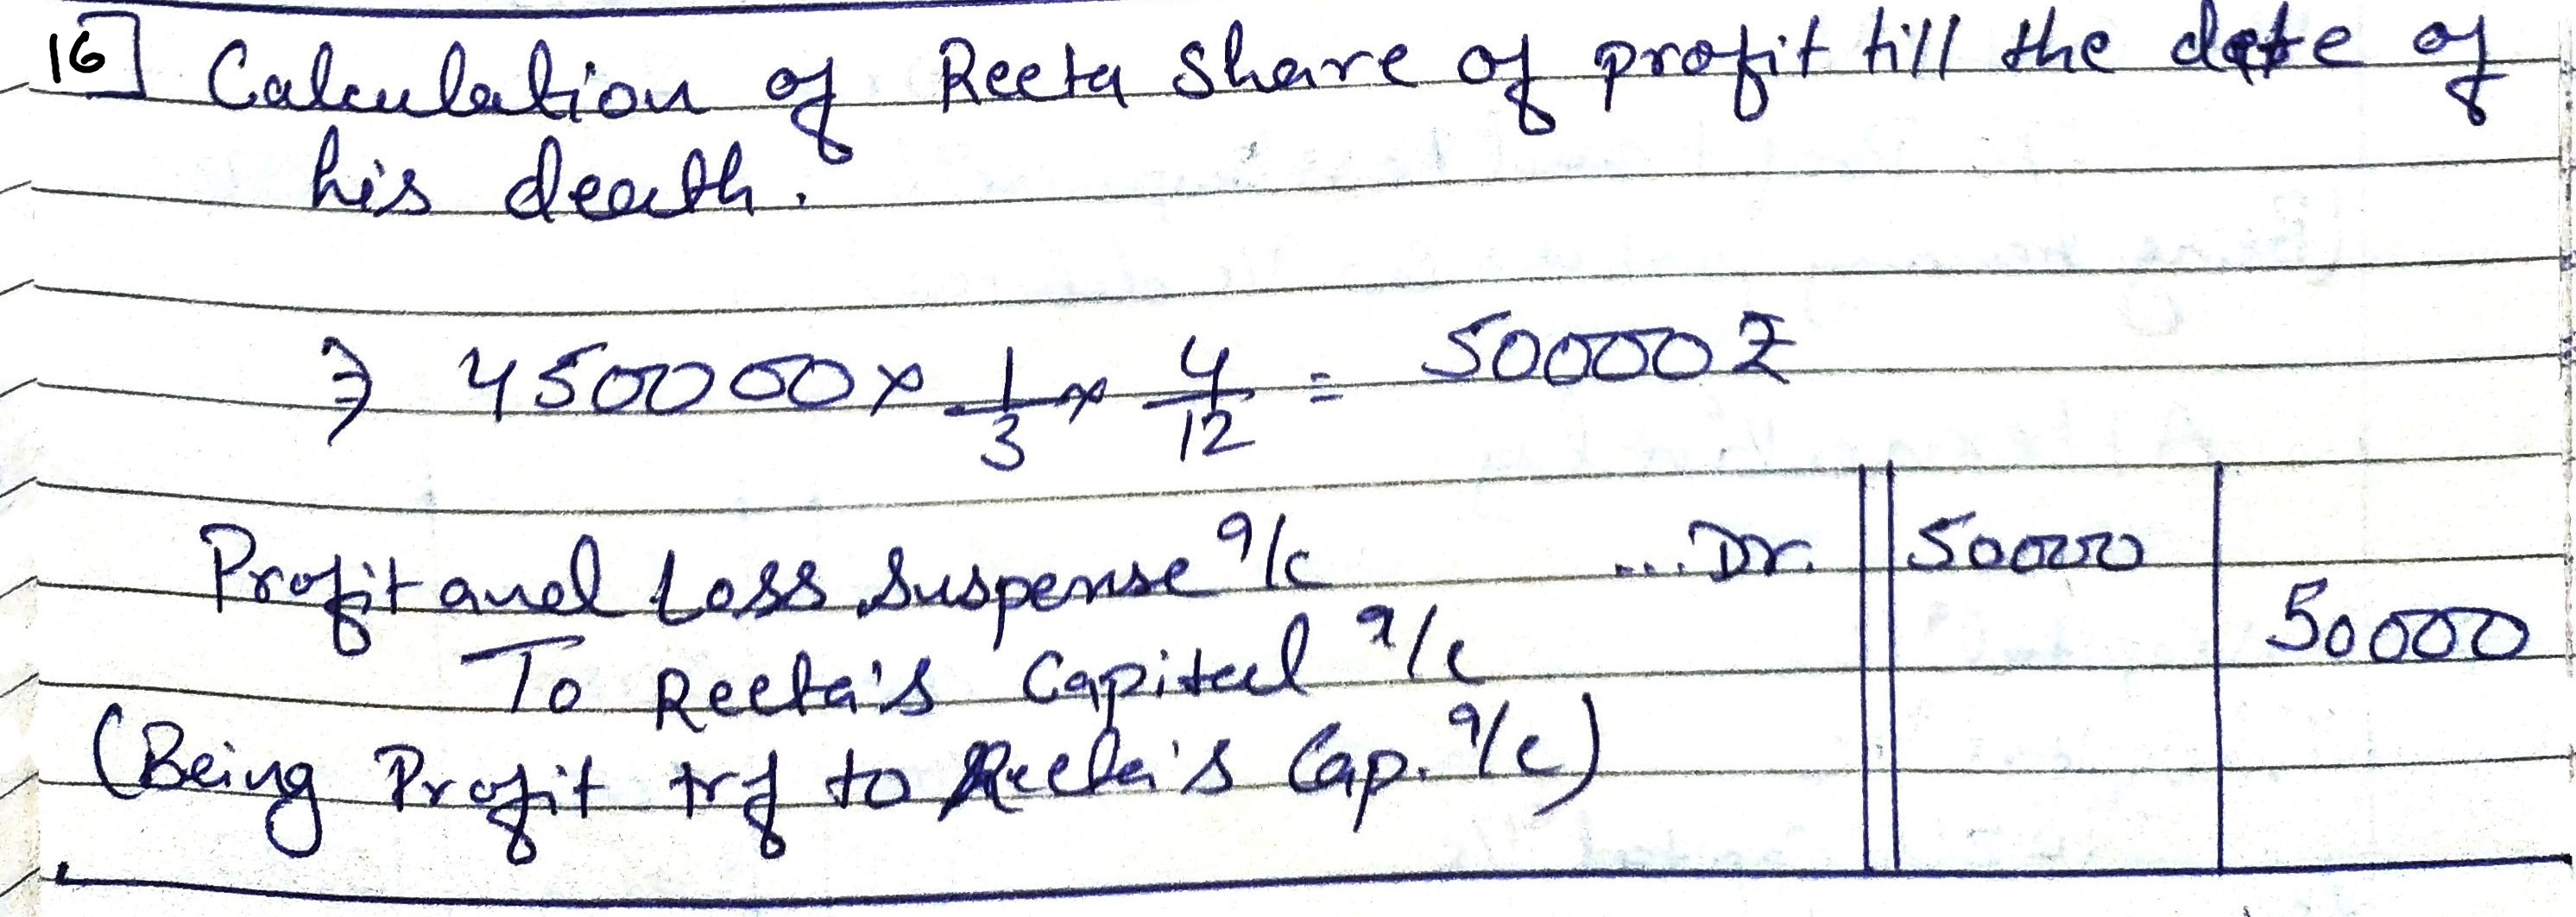 16] Calculation of Reeta Share of profit till the date of
his death.
⇒ 450000 × 1/3 × 4/12 = 50000₹
Profit and Loss Suspense a/c ...Dr. 50000
To Reeta's Capital a/c 50000
(Being Profit trf to Reeta's Cap. a/c)